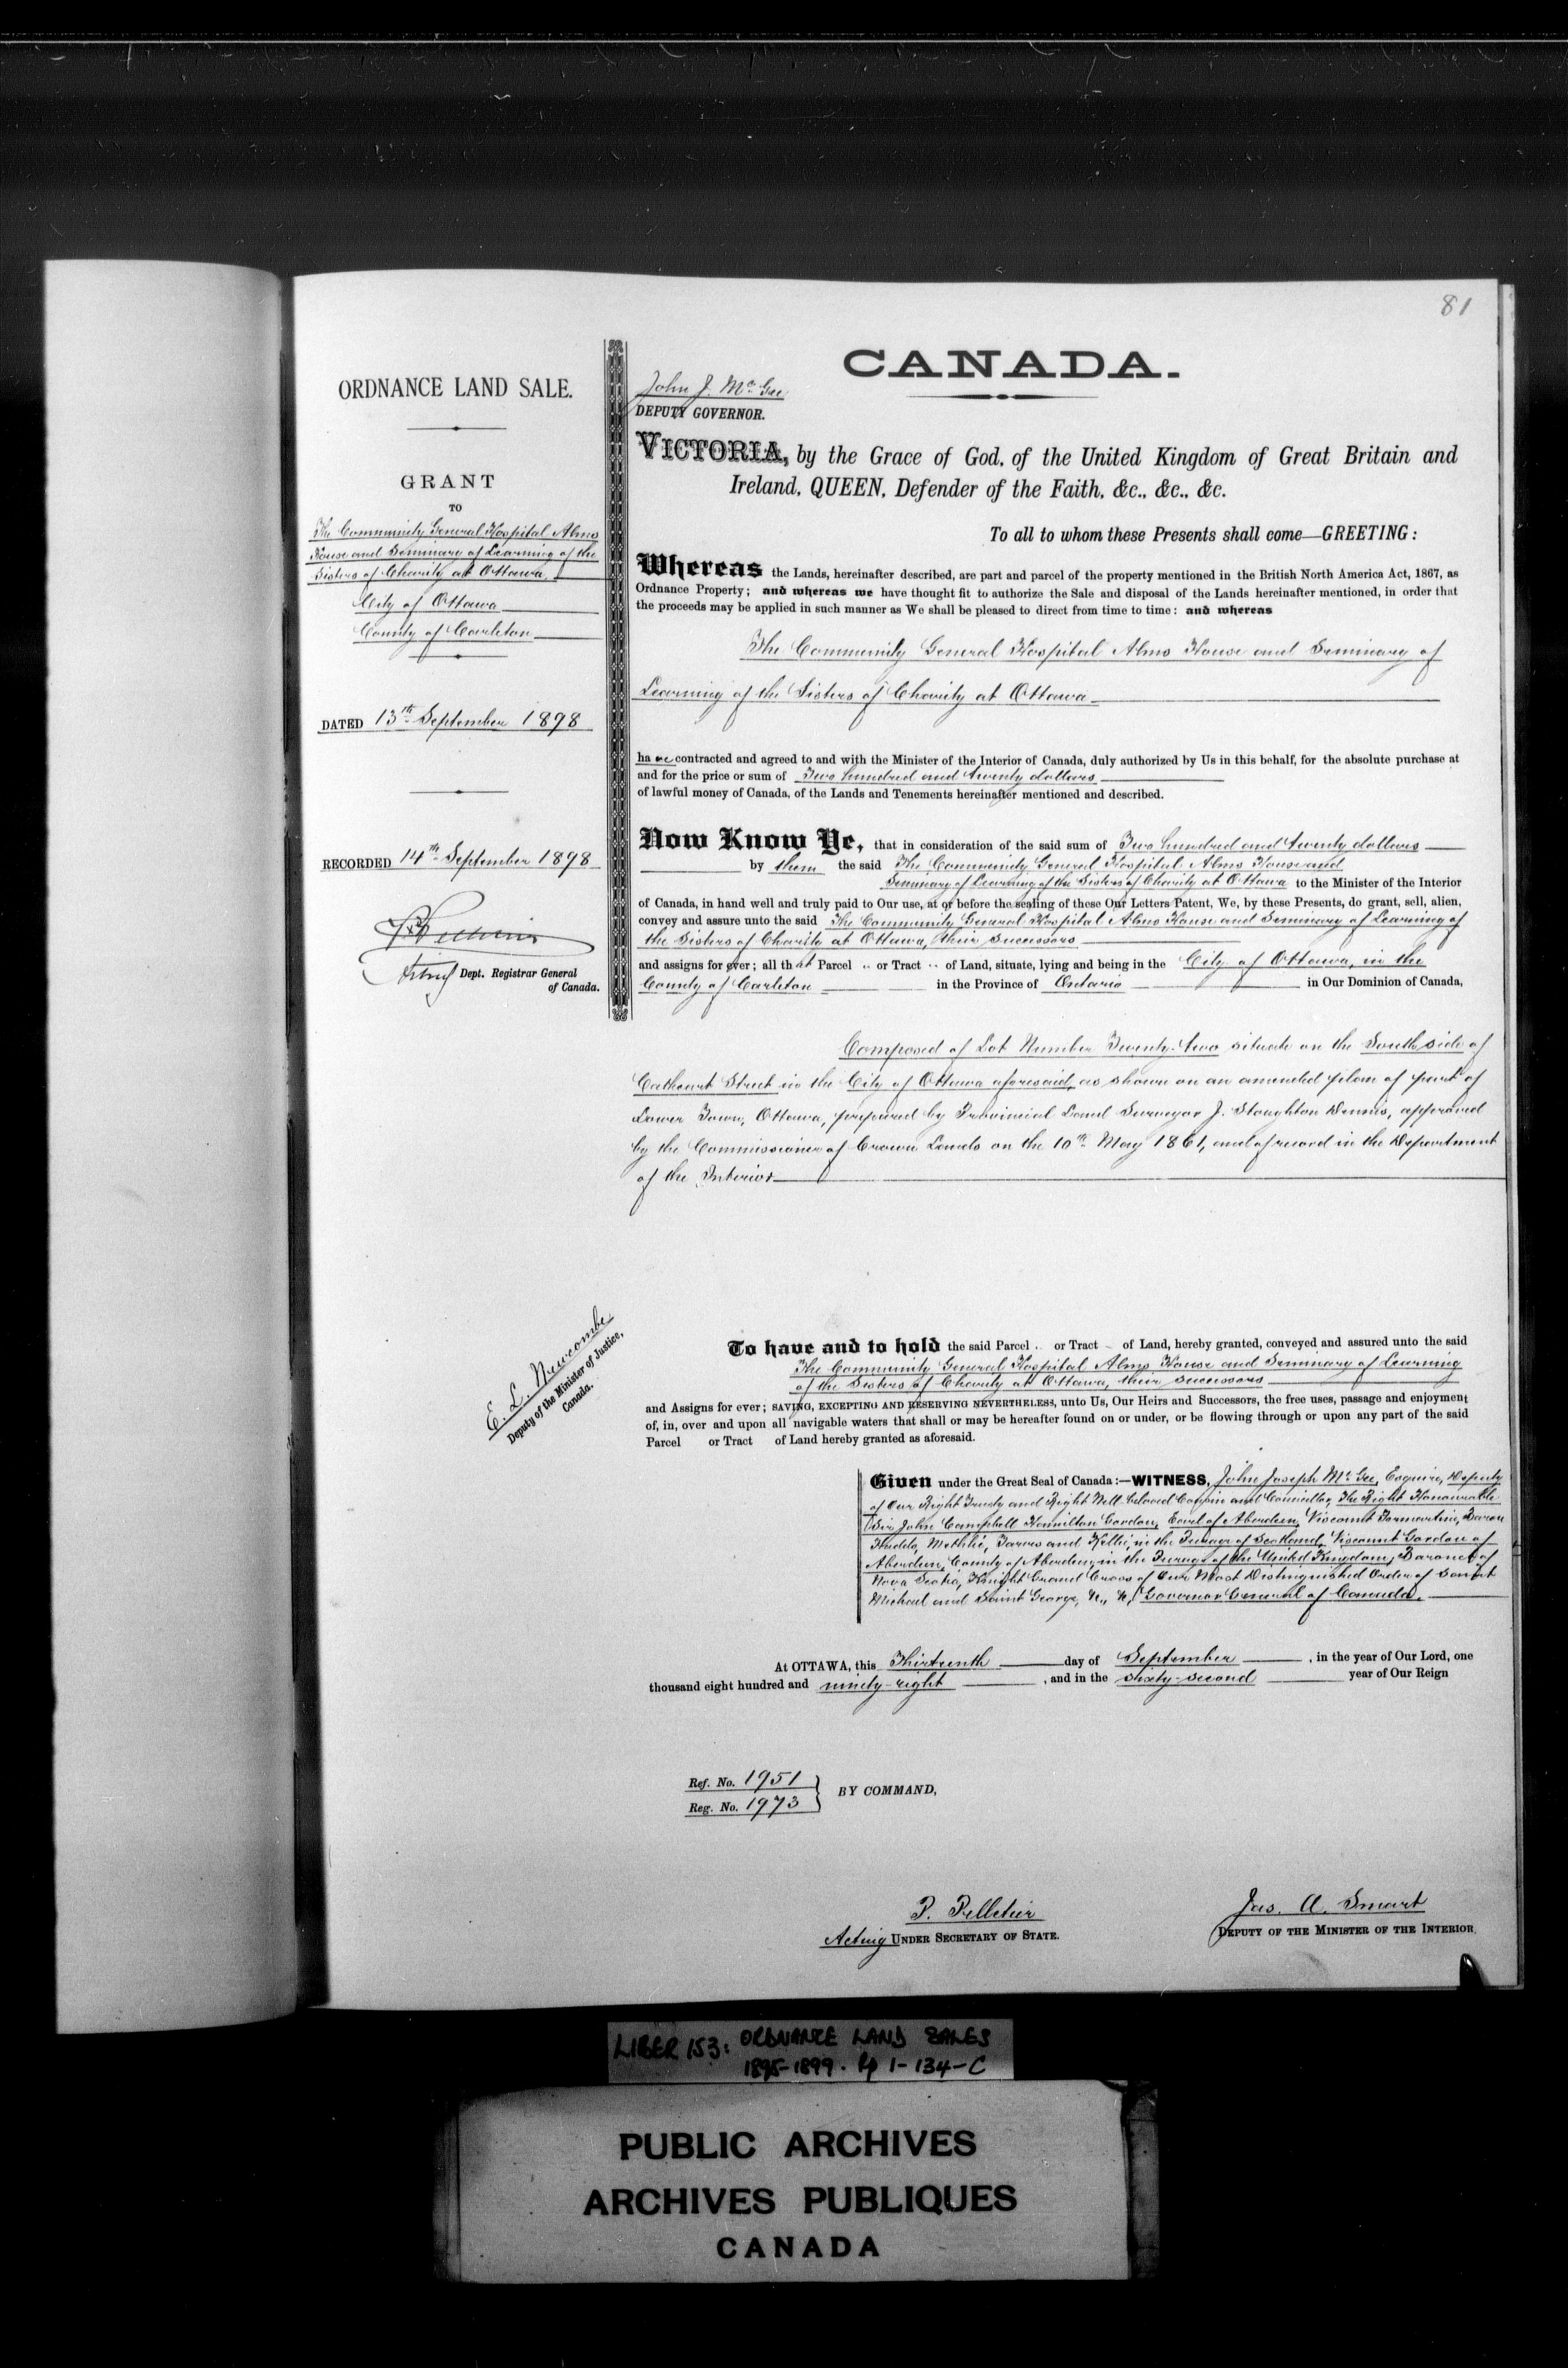 81
ORDNANCE LAND SALE.
GRANT
TO
The Community General Hospital Alms
House and Seminary of Learning of the
Sisters of Charity at Ottawa
City of Ottawa
County of Carleton
DATED 13th September 1898
RECORDED 14th September 1898
Dept. Registrar General
of Canada.
CANADA.
John J. McGee
DEPUTY GOVERNOR.
VICTORIA, by the Grace of God, of the United Kingdom of Great Britain and
Ireland, QUEEN, Defender of the Faith, &c., &c., &c.
To all to whom these Presents shall come—GREETING:
Whereas the Lands, hereinafter described, are part and parcel of the property mentioned in the British North America Act, 1867, as
Ordnance Property; and whereas we have thought fit to authorize the Sale and disposal of the Lands hereinafter mentioned, in order that
the proceeds may be applied in such manner as We shall be pleased to direct from time to time: and whereas
The Community General Hospital Alms House and Seminary of
Learning of the Sisters of Charity at Ottawa
have contracted and agreed to and with the Minister of the Interior of Canada, duly authorized by Us in this behalf, for the absolute purchase at
and for the price or sum of Two hundred and twenty dollars
of lawful money of Canada, of the Lands and Tenements hereinafter mentioned and described.
Now Know Ye, that in consideration of the said sum of Two hundred and twenty dollars
by them the said The Community General Hospital Alms House and
Seminary of Learning of the Sisters of Charity at Ottawa to the Minister of the Interior
of Canada, in hand well and truly paid to Our use, at or before the sealing of these Our Letters Patent, We, by these Presents, do grant, sell, alien,
convey and assure unto the said The Community General Hospital Alms House and Seminary of Learning of
the Sisters of Charity at Ottawa, their successors
and assigns for ever; all that Parcel or Tract of Land, situate, lying and being in the City of Ottawa, in the
County of Carleton in the Province of Ontario in Our Dominion of Canada,
Composed of Lot Number Twenty-two situate on the South side of
Cathcart Street in the City of Ottawa aforesaid, as shown on an amended plan of part of
Lower Town, Ottawa, prepared by Provincial Land Surveyor J. Stoughton Dennis, approved
by the Commissioner of Crown Lands on the 10th May 1861, and of record in the Department
of the Interior
E. L. Newcombe
Deputy of the Minister of Justice,
Canada.
To have and to hold the said Parcel or Tract of Land, hereby granted, conveyed and assured unto the said
The Community General Hospital Alms House and Seminary of Learning
of the Sisters of Charity at Ottawa, their successors
and Assigns for ever; SAVING, EXCEPTING AND RESERVING NEVERTHELESS, unto Us, Our Heirs and Successors, the free uses, passage and enjoyment
of, in, over and upon all navigable waters that shall or may be hereafter found on or under, or be flowing through or upon any part of the said
Parcel or Tract of Land hereby granted as aforesaid.
Given under the Great Seal of Canada:—WITNESS, John Joseph McGee, Esquire, Deputy
of Our Right Trusty and Right Well-beloved Cousin and Councillor, The Right Honourable
Sir John Campbell Hamilton Gordon, Earl of Aberdeen, Viscount Formartine, Baron
Haddo, Methlic, Tarves and Kellie, in the Peerage of Scotland, Viscount Gordon of
Aberdeen, County of Aberdeen, in the Peerage of the United Kingdom, Baronet of
Nova Scotia, Knight Grand Cross of Our Most Distinguished Order of Saint
Michael and Saint George, &c., &c., Governor General of Canada.
At OTTAWA, this Thirteenth day of September, in the year of Our Lord, one
thousand eight hundred and ninety-eight, and in the sixty-second year of Our Reign
Ref. No. 1951
Reg. No. 1973
BY COMMAND,
P. Pelletier
Acting UNDER SECRETARY OF STATE.
Jas. A. Smart
DEPUTY OF THE MINISTER OF THE INTERIOR.
LIBER 153: ORDNANCE LAND SALES
1895-1899. Pp 1-134-C
PUBLIC ARCHIVES
ARCHIVES PUBLIQUES
CANADA